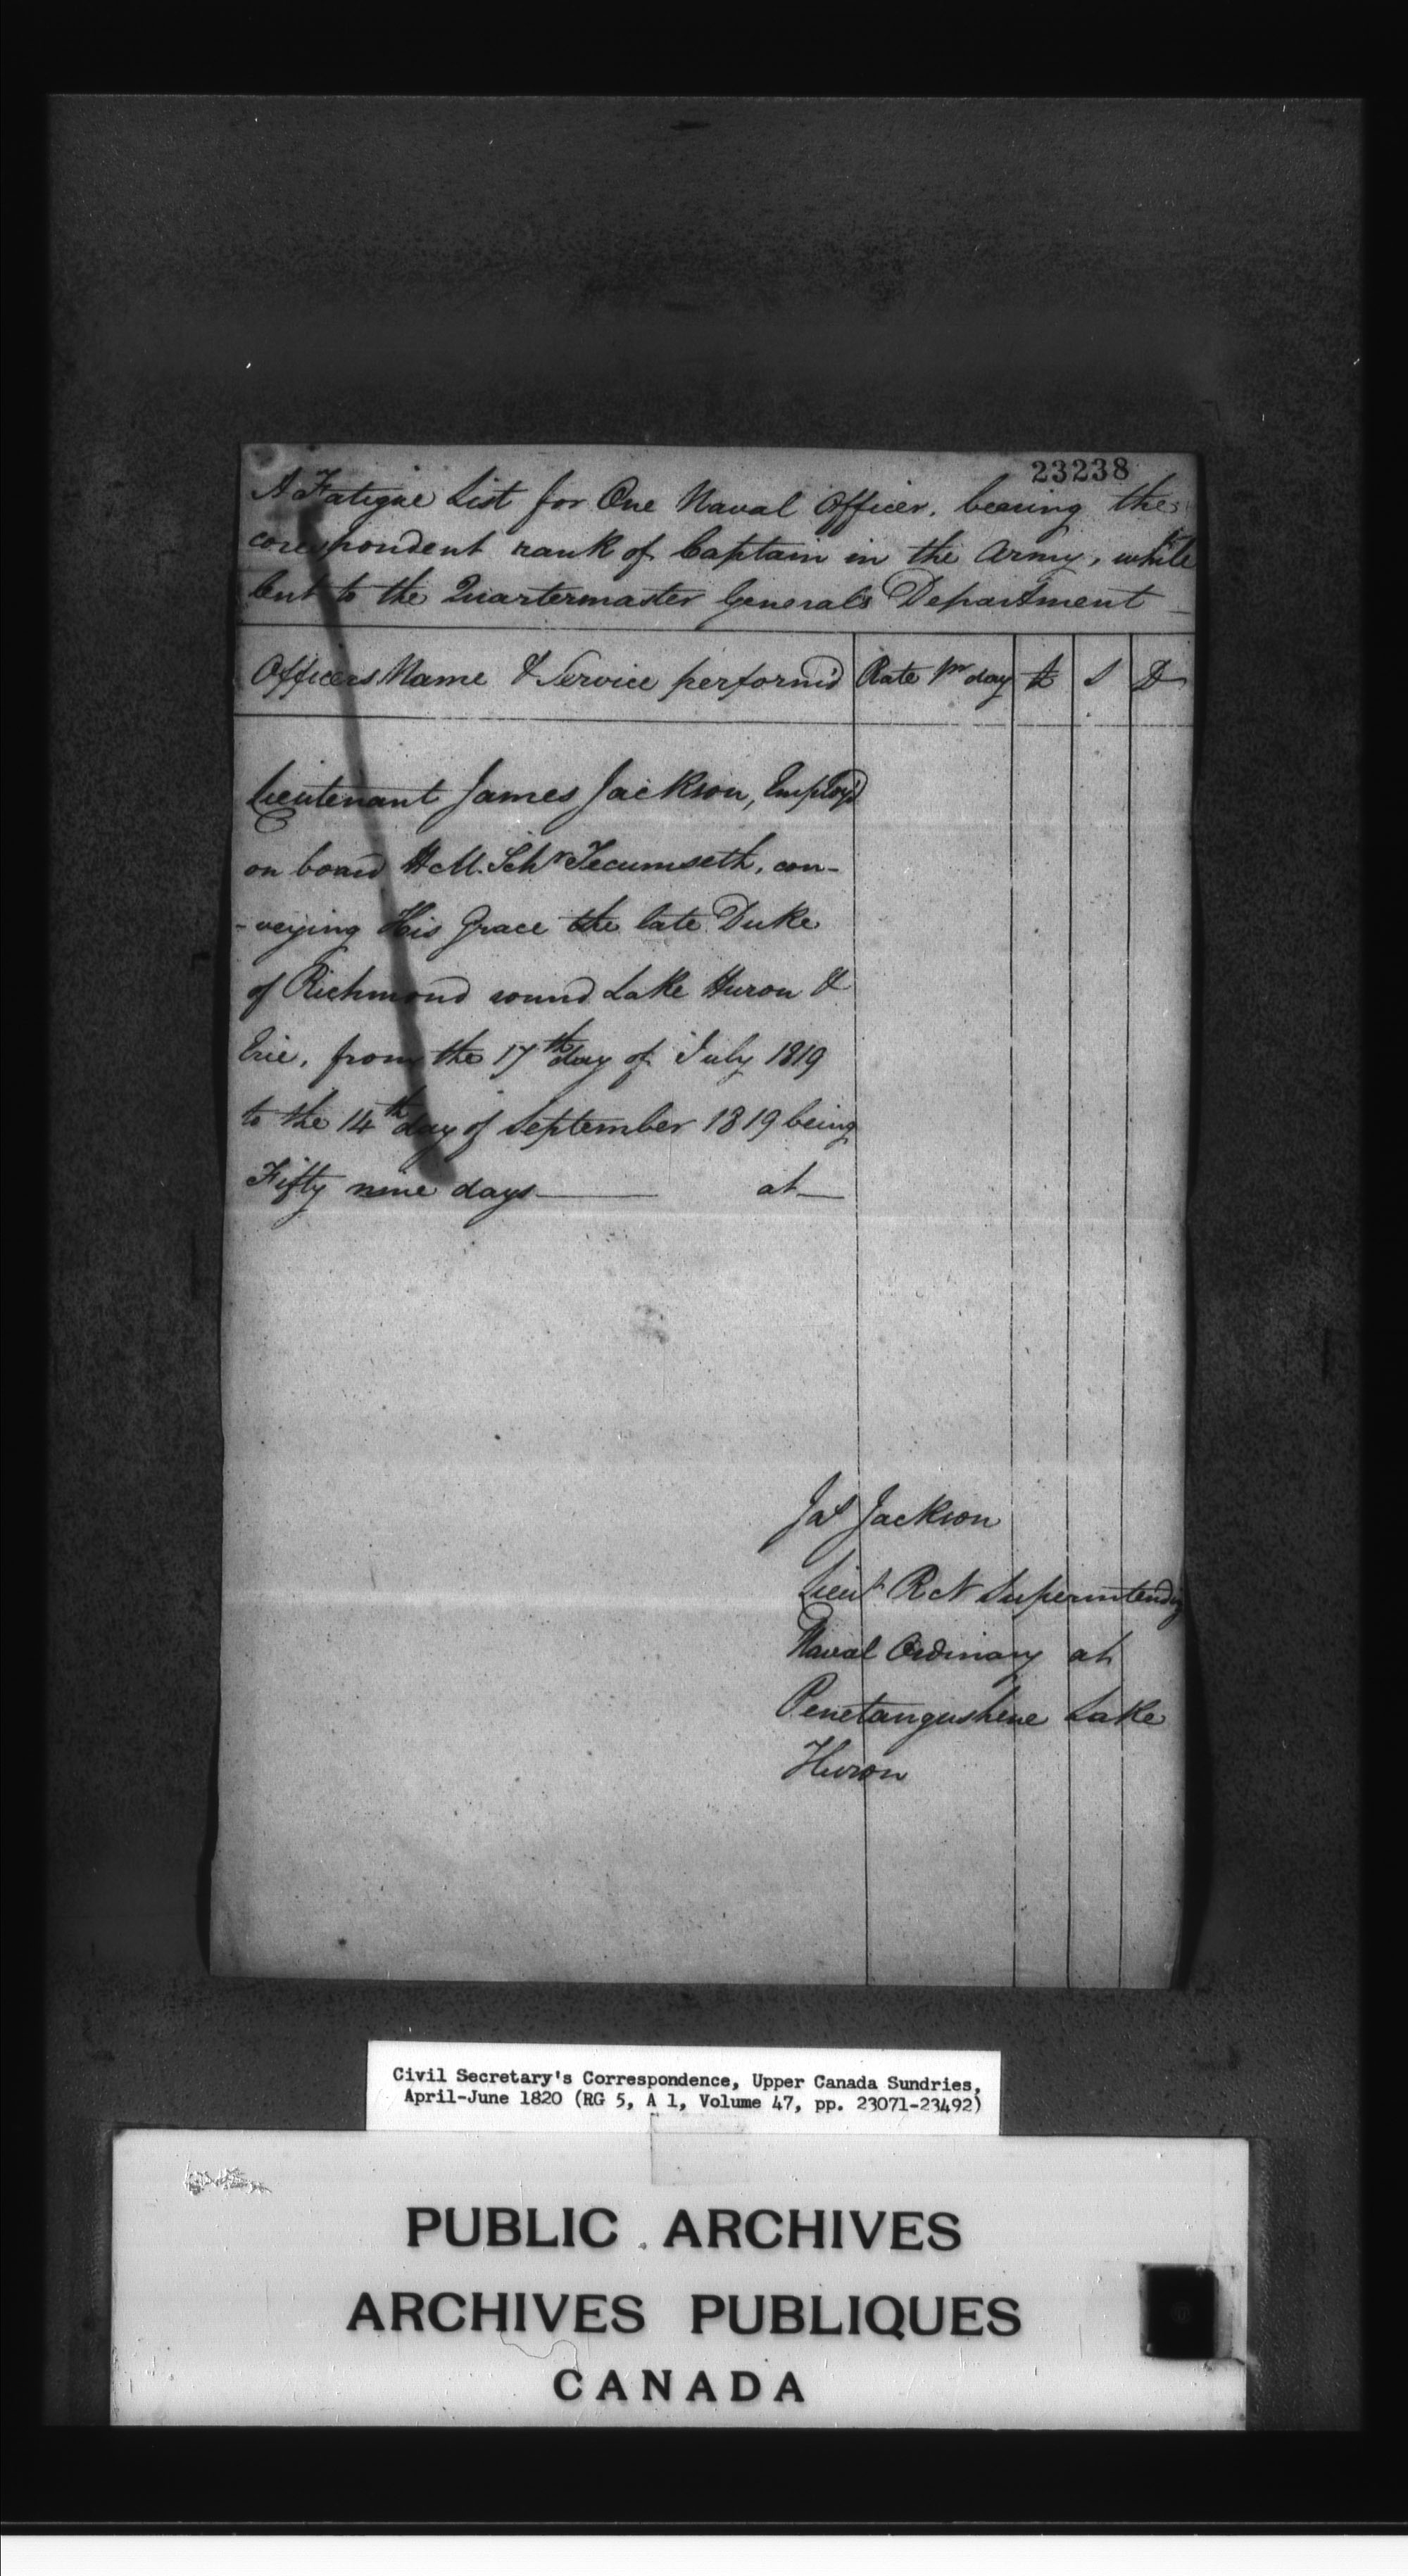 23238
A Fatigue List for One Naval Officer, bearing the
correspondent rank of Captain in the Army, while
lent to the Quartermaster Generals Department
Officers Name & Service perform'd Rate pr day £ S D
Lieutenant James Jackson, Employ'd
on board H M. Schr Tecumseth, con-
-veying His Grace the late Duke
of Richmond round Lake Huron &
Erie, from the 17th day of July 1819
to the 14th day of September 1819 being
Fifty nine days at
Jas Jackson
Lieut R N Superintending
Naval Ordinary at
Penetangushene Lake
Huron
Civil Secretary's Correspondence, Upper Canada Sundries,
April-June 1820 (RG 5, A 1, Volume 47, pp. 23071-23492)
PUBLIC ARCHIVES
ARCHIVES PUBLIQUES
CANADA